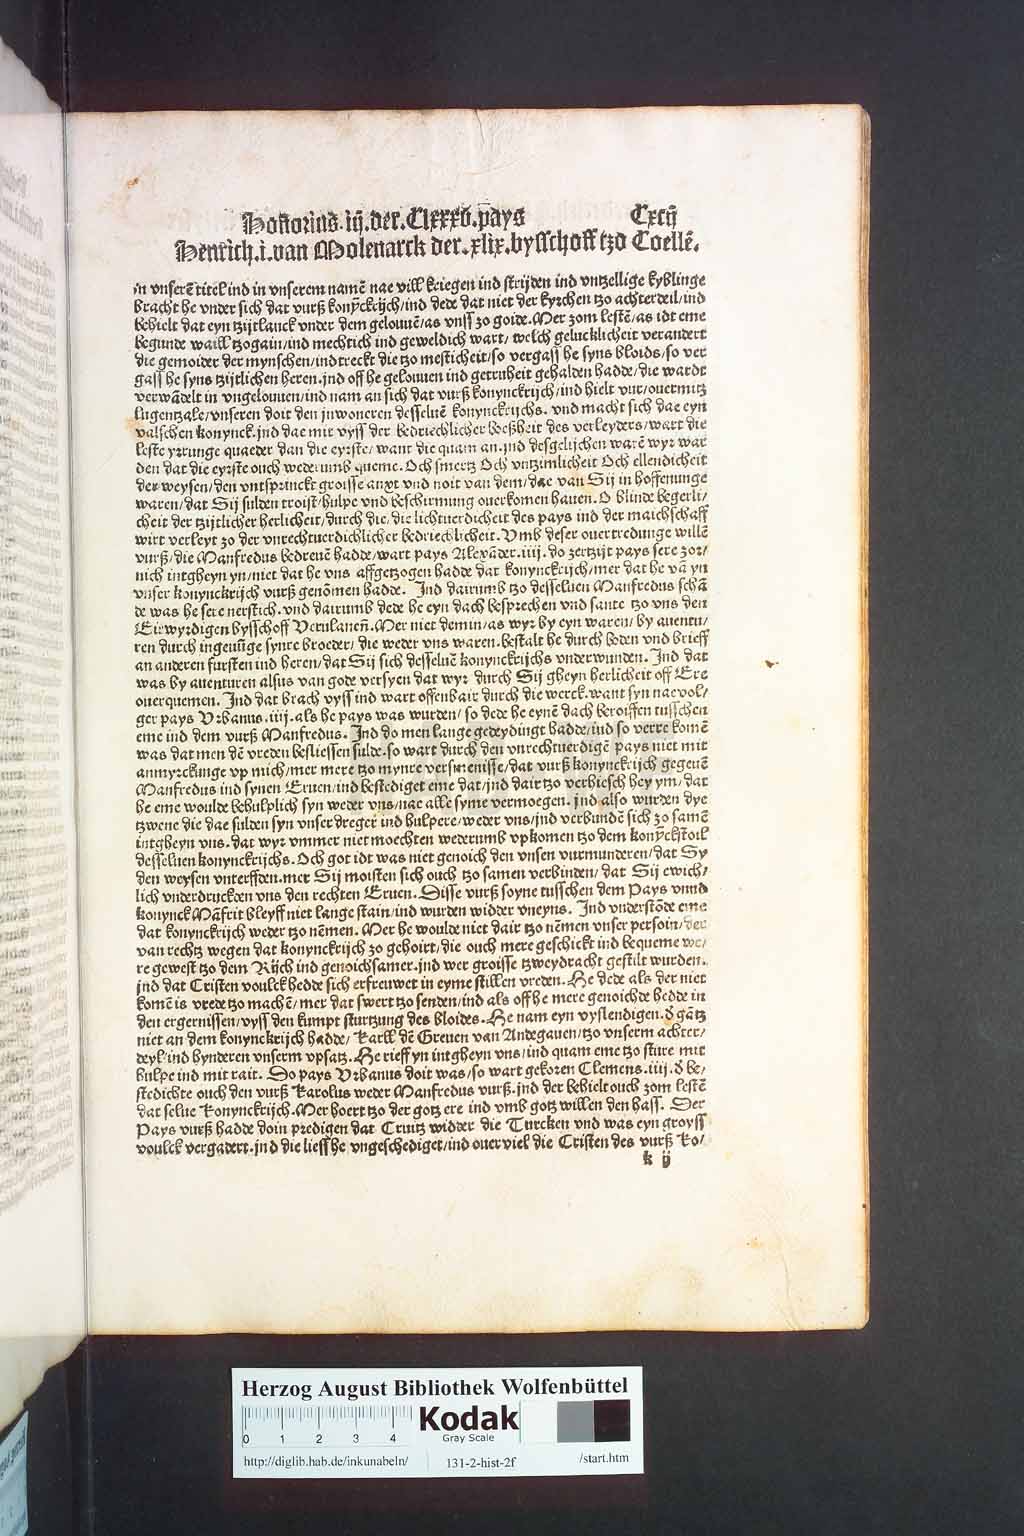 Honorius. iij. der. Clxxxv. pays Cxcij
Henrich. i. van Molenarck der. xlix. bysschoff tzo Coellē.
in vnserē titel ind in vnserem namē nae vill kriegen ind strijden ind vntzellige kyblinge
bracht he vnder sich dat vurß konyckrijch/ind dede dat niet der kyrchen tzo achterdeil/ind
behielt dat eyn tzijtlanck vnder dem gelouuē/as vnss zo goide. Mer zom lestē/as idt eme
begunde waill tzogain/ind mechtich ind geweldich wart/ welch gelucklicheit verandert
die gemoider der mynschen/ind treckt die tzo mesticheit/so vergass he syns bloids/so ver
gass he syns tzijtlichen heren. jnd off he gelouuen ind getruheit gehalden hadde/die wardt
verwādelt in vngelouuen/ind nam an sich dat vurß konynckrijch/ind hielt vur/ouermitz
lugentzale/vnseren doit den inwoneren desseluē konynckrijchs. vnd macht sich dae eyn
valschen konynck. jnd dae mit vyss der bedriechlicher boeßheit des verleyders/wart die
leste yrrunge quaeder dan die eyrste/want die quam an. jnd desgelijchen warē wyr war
den dat die eyrste ouch wederumb queme. Och smertz Och vntzimlicheit Och ellendicheit
der weysen/den vntsprinckt groisse anxt vnd noit van dem/dae van Sij in hoffenunge
waren/dat Sij sulden troist/hulpe vnd beschirmung ouerkomen hauen. O blinde begerli/
cheit der tzijtlicher herlicheit/durch die/die lichtuerdicheit des pays ind der maichschaff
wirt verleyt zo der vnrechtuerdichlicher bedriechlicheit. Vmb deser ouertredunge willē
vurß/die Manfredus bedreuē hadde/wart pays Alexāder. iiij. do zertzijt pays sere zor/
nich intgheyn yn/niet dat he vns affgetzogen hadde dat konynckrijch/mer dat he vā yn
vnser konynckrijch vurß genōmen hadde. Ind dairumb tzo desseluen Manfredus schā
de was he sere nerstich. vnd dairumb dede he eyn dach besprechen vnd sante tzo vns den
Eirwyrdigen bysschoff Verulanen̄. Mer niet demin/as wyr by eyn waren/ by auentu/
ren durch ingeuūge synre broeder/ die weder vns waren. bestalt he durch boden vnd brieff
an anderen fursten ind heren/dat Sij sich desseluē konynckrijchs vnderwunden. Ind dat
was by auenturen alsus van gode versyen dat wyr durch Sij gheyn herlicheit off Ere
ouerquemen. Ind dat brach vyss ind wart offenbair durch die werck. want syn naevol/
ger pays Vrbanus. iiij. als he pays was wurden/ so dede he eynē dach beroiffen tusschen
eme ind dem vurß Manfredus. Ind do men lange gedeydingt hadde/ind so verre komē
was dat men dē vreden besliessen sulde. so wart durch den vnrechtuerdigē pays niet mit
anmyrckunge vp mich/mer mere tzo mynre versmenisse/dat vurß konynckrijch gegeuē
Manfredus ind synen Eruen/ind bestediget eme dat/jnd dair tzo verhiesch hey ym/dat
he eme woulde behulplich syn weder vns/nae alle syme vermoegen. jnd also wurden dye
tzwene die dae sulden syn vnser dreger ind hulpere/weder vns/jnd verbundē sich zo samē
intgheyn vns. dat wyr vmmer niet moechten wederumb vpkomen tzo dem konyckstoil
desseluen konynckrijchs. Och got idt was niet genoich den vnsen vurmunderen/dat Sy
den weysen vnterffden. mer Sij moisten sich ouch tzo samen verbinden/ dat Sij ewich/
lich vnderdruckden vns den rechten Eruen. Disse vurß soyne tusschen dem Pays vnnd
konynck Māfrit bleyff niet lange stain/ind wurden widder vneyns. Ind vnderstōde eme
dat konynckrijch weder tzo nēmen. Mer he woulde niet dair tzo nēmen vnser persoin/der
van rechtz wegen dat konynckrijch zo gehoirt/die ouch mere geschickt ind bequeme we/
re gewest tzo dem Rijch ind genoichsamer. jnd wer groisse tzweydracht gestilt wurden.
jnd dat Cristen voulck hedde sich erfreuwet in eyme stillen vreden. He dede als der niet
komē is vrede tzo machē/mer dat swert tzo senden/ind als off he mere genoichde hedde in
den ergernissen/vyss den kumpt sturtzung des bloides. He nam eyn vyslendigen. đ gātz
niet an dem konynckrijch hadde/ Karll dē Greuen van Andegauen/tzo vnserm achter/
deyl/ind hynderen vnserm vpsatz. He rieff yn intgheyn vns/ind quam eme tzo sture mit
hulpe ind mit rait. Do pays Vrbanus doit was/so wart gekoren Clemens. iiij. đ be/
stedichte ouch den vurß Karolus weder Manfredus vurß. jnd der behielt ouch zom lestē
dat selue Konynckrijch. Mer hoert tzo der gotz ere ind vmb gotz willen den hass. Der
Pays vurß hadde doin predigen dat Cruitz widder die Turcken vnd was eyn groyss
voulck vergadert. jnd die liess he vngeschediget/ind ouerviel die Cristen des vurß Ko/
k ij
Herzog August Bibliothek Wolfenbüttel
0 1 2 3 4
Kodak
Gray Scale
http://diglib.hab.de/inkunabeln/ 131-2-hist-2f /start.htm